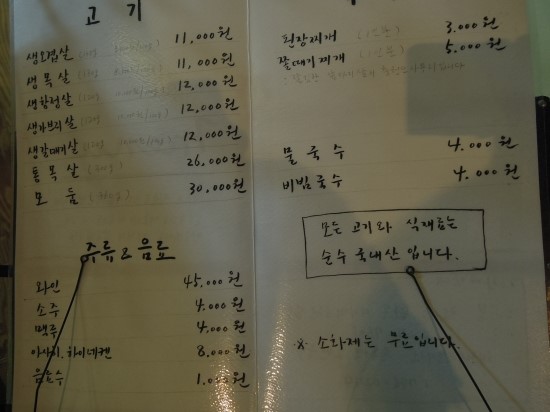 고기
생오겹살 11,000원
생목살 11,000원
생항정살 12,000원
생가브리살 12,000원
생갈매기살 12,000원
통목살 26,000원
모듬 30,000원
주류 & 음료
와인 45,000원
소주 4,000원
맥주 4,000원
아사히.하이네켄 8,000원
음료수 1,000원
된장찌개 (1인분) 3,000원
쫄때기찌개 (1인분) 5,000원
물국수 4,000원
비빔국수 4,000원
모든 고기와 식재료는
순수 국내산 입니다.
※ 소화제는 무료입니다.